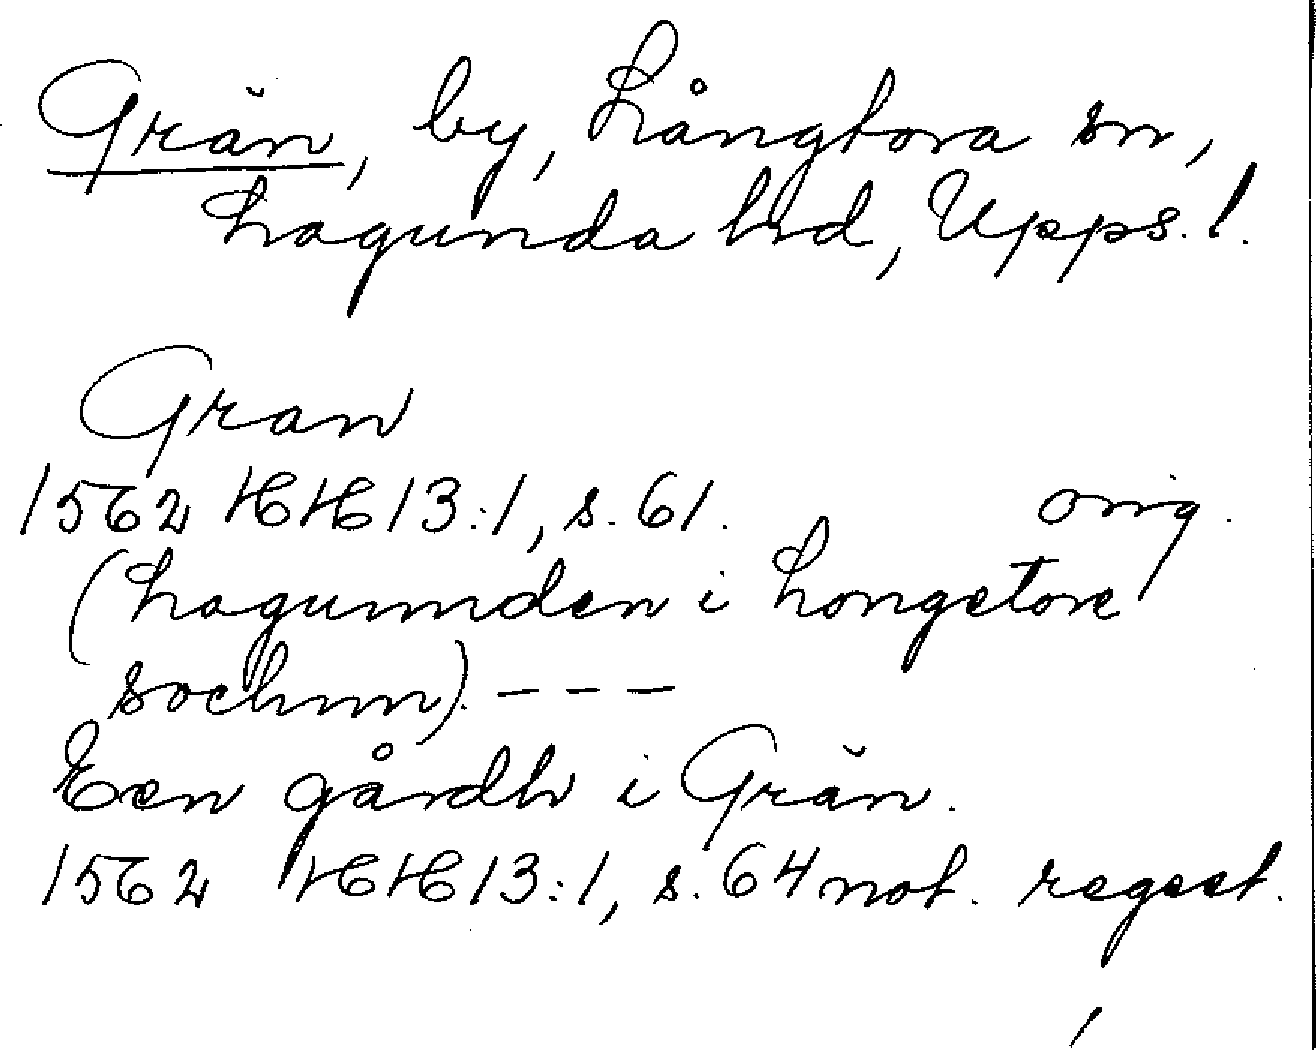 Grän, by, Långtora sn,
Lagunda hd, Upps. l.
Gran
1562 HH 13:1, s. 61. orig.
(Lagunnden i Longetore
sochnn). - - -
Een gårdh i Grän.
1562 HH 13:1, s. 64 not. regest.